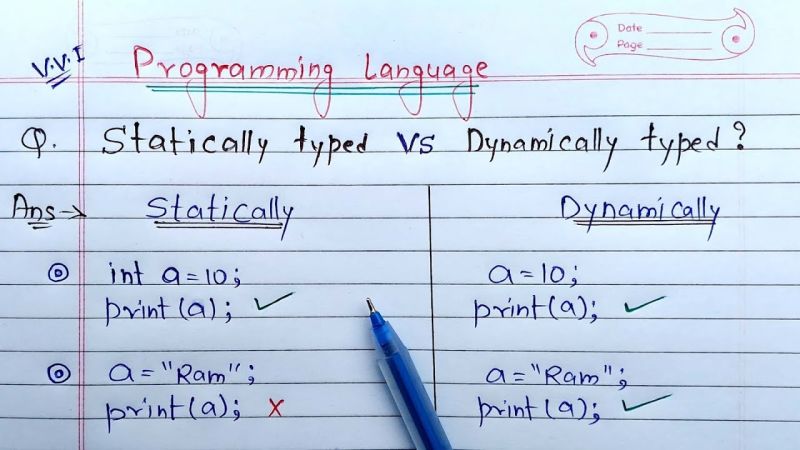 Date
Page
V.V.I
Programming Language
Q. Statically typed VS Dynamically typed?
Ans→ Statically Dynamically
int a=10; a=10;
print(a); ✓ print(a); ✓
a="Ram"; a="Ram";
print(a); X print(a); ✓